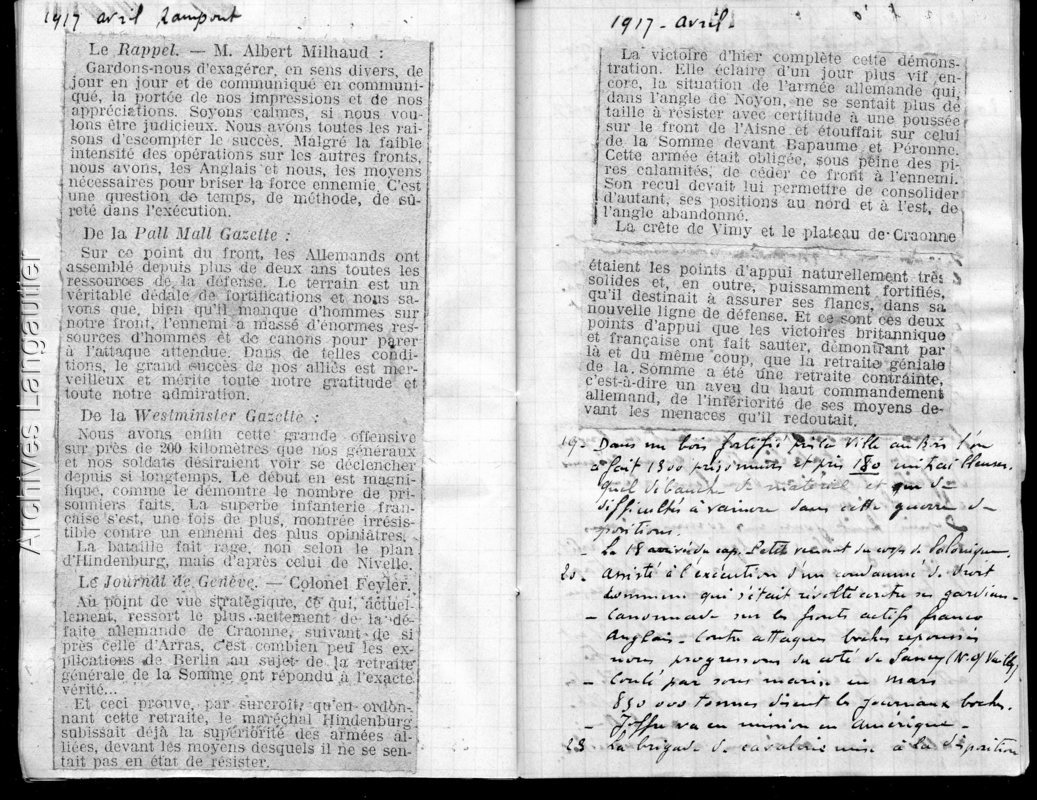 1917 avril Rampont
Le Rappel. — M. Albert Milhaud :
Gardons-nous d'exagérer, en sens divers, de
jour en jour et de communiqué en communi-
qué, la portée de nos impressions et de nos
appréciations. Soyons calmes, si nous vou-
lons être judicieux. Nous avons toutes les rai-
sons d'escompter le succès. Malgré la faible
intensité des opérations sur les autres fronts,
nous avons, les Anglais et nous, les moyens
nécessaires pour briser la force ennemie. C'est
une question de temps, de méthode, de sû-
reté dans l'exécution.
De la Pall Mall Gazette :
Sur ce point du front, les Allemands ont
assemblé depuis plus de deux ans toutes les
ressources de la défense. Le terrain est un
véritable dédale de fortifications et nous sa-
vons que, bien qu'il manque d'hommes sur
notre front, l'ennemi a massé d'énormes res-
sources d'hommes et de canons pour parer
à l'attaque attendue. Dans de telles condi-
tions, le grand succès de nos alliés est mer-
veilleux et mérite toute notre gratitude et
toute notre admiration.
De la Westminster Gazette :
Nous avons enfin cette grande offensive
sur près de 200 kilomètres que nos généraux
et nos soldats désiraient voir se déclencher
depuis si longtemps. Le début en est magni-
fique, comme le démontre le nombre de pri-
sonniers faits. La superbe infanterie fran-
çaise s'est, une fois de plus, montrée irrésis-
tible contre un ennemi des plus opiniâtres.
La bataille fait rage, non selon le plan
d'Hindenburg, mais d'après celui de Nivelle.
Le Journal de Genève. — Colonel Feyler.
Au point de vue stratégique, ce qui, actuel-
lement, ressort le plus nettement de la dé-
faite allemande de Craonne, suivant de si
près celle d'Arras, c'est combien peu les ex-
plications de Berlin au sujet de la retraite
générale de la Somme ont répondu à l'exacte
vérité...
Et ceci prouve, par surcroît, qu'en ordon-
nant cette retraite, le maréchal Hindenburg
subissait déjà la supériorité des armées al-
liées, devant les moyens desquels il ne se sen-
tait pas en état de résister.
1917 - Avril -
La victoire d'hier complète cette démons-
tration. Elle éclaire d'un jour plus vif en-
core, la situation de l'armée allemande qui,
dans l'angle de Noyon, ne se sentait plus de
taille à résister avec certitude à une poussée
sur le front de l'Aisne et étouffait sur celui
de la Somme devant Bapaume et Péronne.
Cette armée était obligée, sous peine des pi-
res calamités, de céder ce front à l'ennemi.
Son recul devait lui permettre de consolider
d'autant, ses positions au nord et à l'est, de
l'angle abandonné.
La crête de Vimy et le plateau de Craonne
étaient les points d'appui naturellement très
solides et, en outre, puissamment fortifiés,
qu'il destinait à assurer ses flancs, dans sa
nouvelle ligne de défense. Et ce sont ces deux
points d'appui que les victoires britannique
et française ont fait sauter, démontrant par
là et du même coup, que la retraite géniale
de la Somme a été une retraite contrainte,
c'est-à-dire un aveu du haut commandement
allemand, de l'infériorité de ses moyens de-
vant les menaces qu'il redoutait.
19 - Dans un bois fortifié près la Ville au Bois l'on
a fait 1300 prisonniers et pris 180 mitrailleuses.
quel débauche de matériel et que de
difficultés à vaincre dans cette guerre de
positions.
- Le 18 arrivée du cap. Petit venant du corps de Salonique.
20 - Assisté à l'exécution d'un condamné de droit
commun qui s'était révolté contre ses gardiens -
- Canonnade sur les fronts actifs franco
Anglais - Contre attaques boches repoussées
nous progressons du coté de Sancy (N.O/Vailly)
- Coulé par sous marin en mars
850 000 tonnes disent les journaux boches.
- Joffre va en mission en Amérique -
23 La brigade de cavalerie mise à la disposition
Archives Langautier